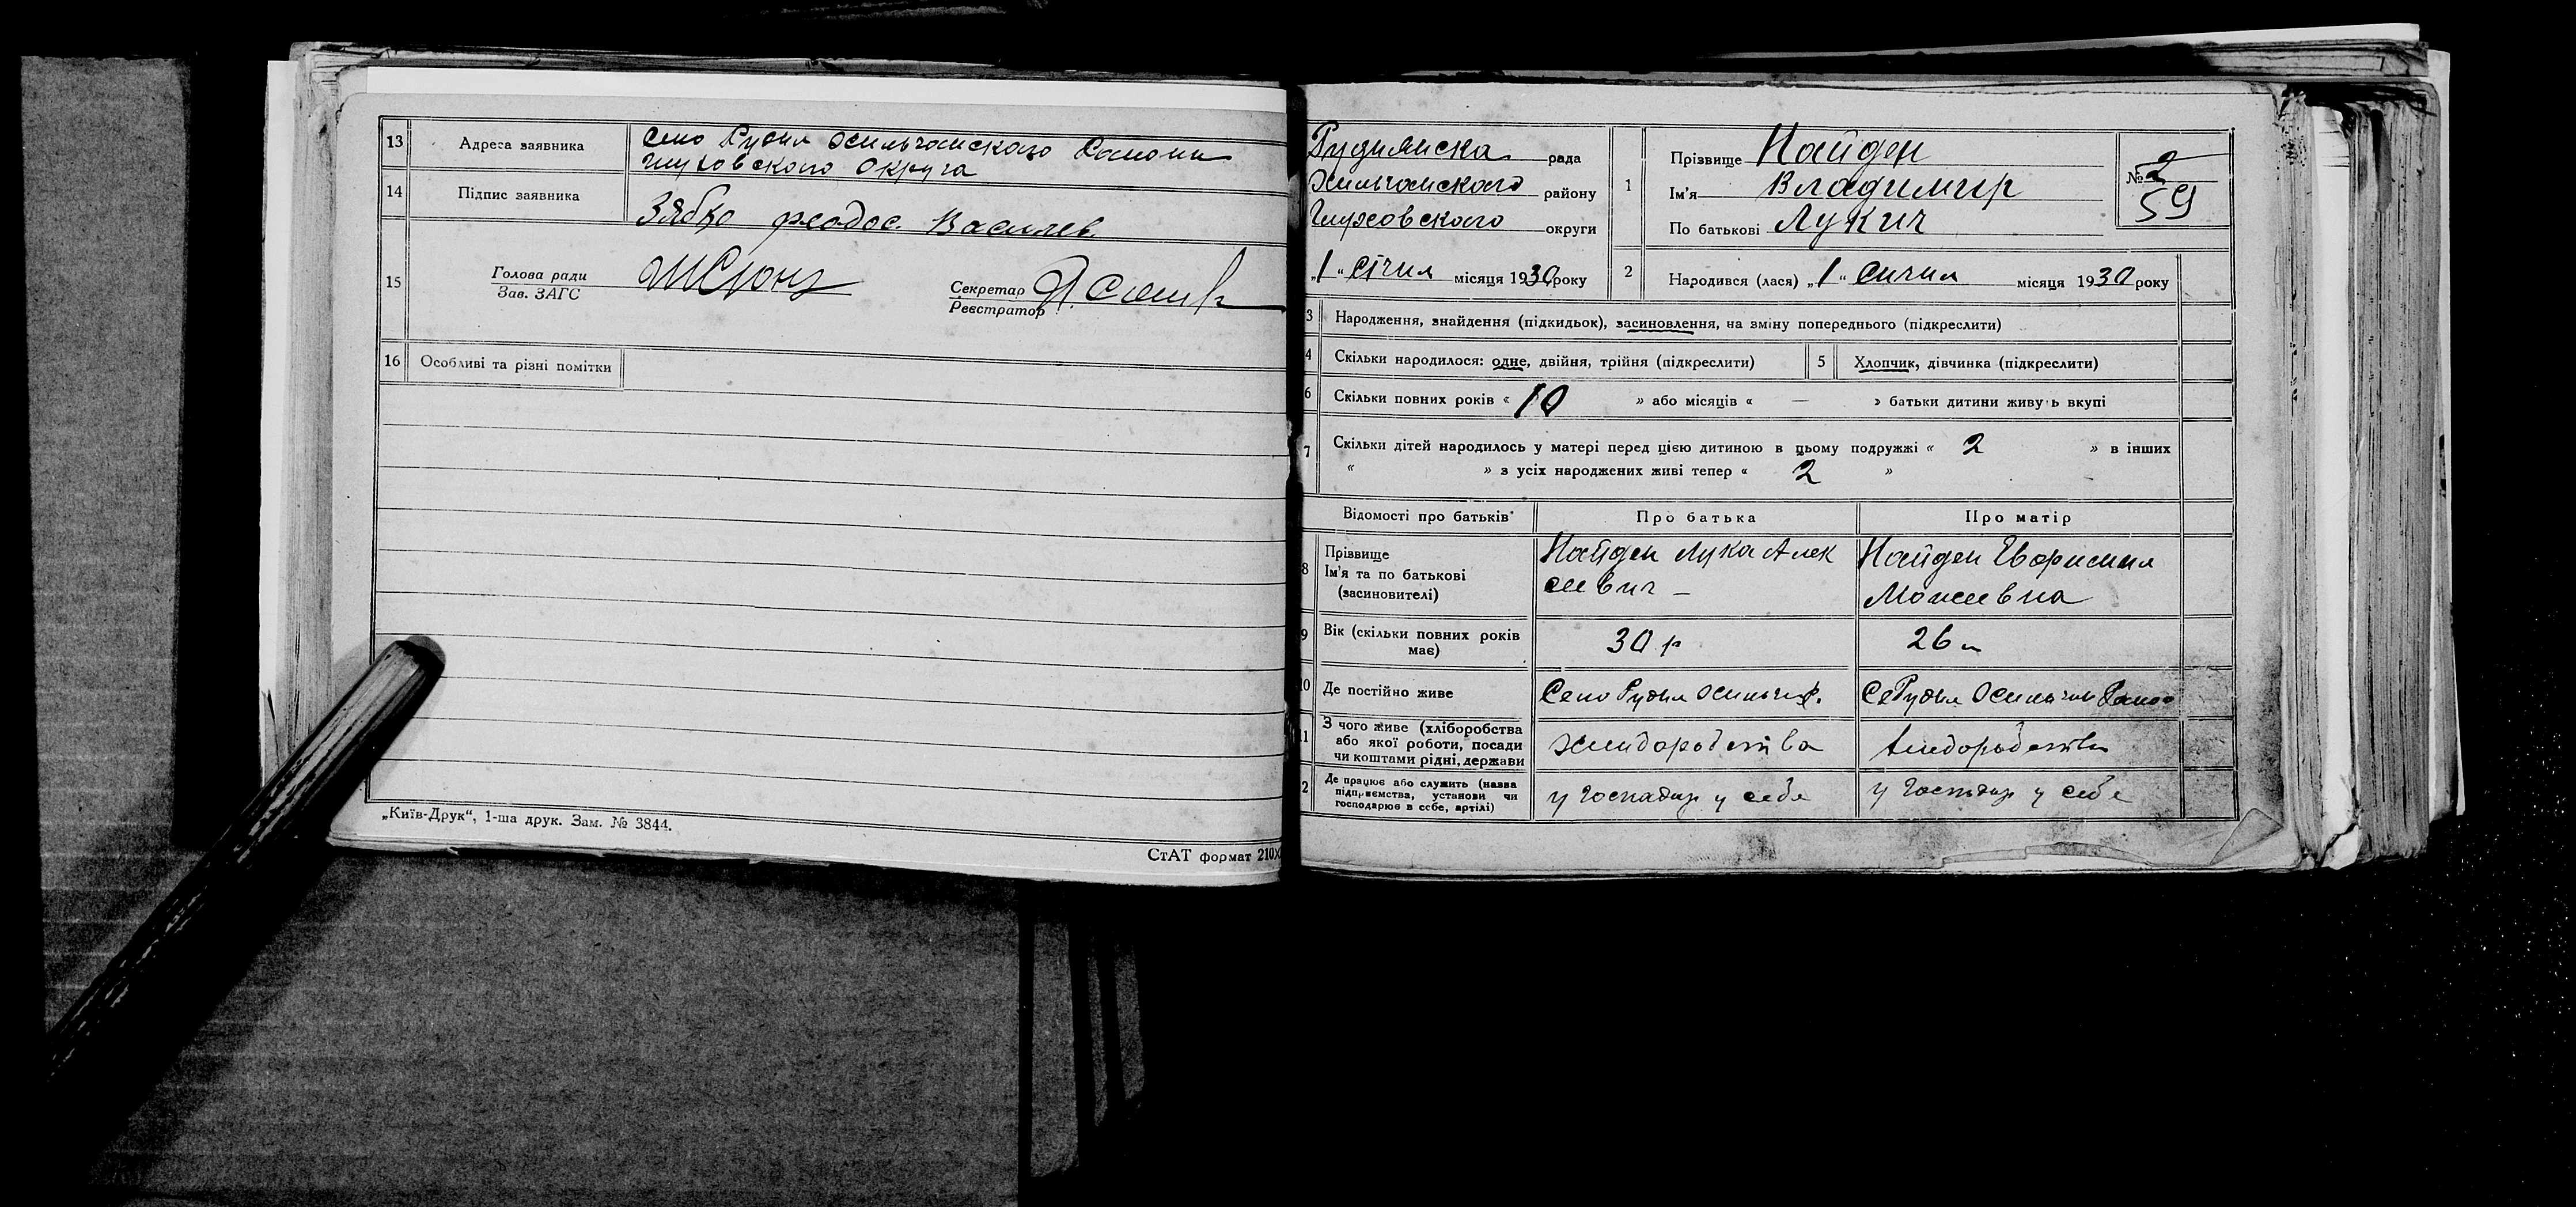 13 Адреса заявника Село Рудня Хильчанского Района
Глуховского Округа
14 Підпис заявника Зябко Феодос. Василев.
15 Голова ради
Зав. ЗАГС
Секретар
Реєстратор
16 Особливі та різні помітки
„Київ-Друк“, 1-ша друк. Зам. № 3844.
СтАТ формат 210X
Руднянска рада
Хильчанского району
Глуховского округи
„1“ січня місяця 1930 року
1 Прізвище Найден
Ім'я Владимир
По батькові Лукич
№ 2
59
2 Народився (лася) „1“ сичня місяця 1930 року
3 Народження, знайдення (підкидьок), засиновлення, на зміну попереднього (підкреслити)
4 Скільки народилося: одне, двійня, трійня (підкреслити) 5 Хлопчик, дівчинка (підкреслити)
6 Скільки повних років « 10 » або місяців « — » батьки дитини живуть вкупі
7 Скільки дітей народилось у матері перед цією дитиною в цьому подружжі « 2 » в інших
« » з усіх народжених живі тепер « 2 »
Відомості про батьків Про батька Про матір
8 Прізвище
Ім'я та по батькові
(засиновителі)
Найден Лука Алек
сеевич –
Найден Евфросиния
Моисеевна
9 Вік (скільки повних років
має)
30 р
26
10 Де постійно живе Село Рудня
С Рудня
11 З чого живе (хліборобства
або якої роботи, посади
чи коштами рідні, держави
хлидородства
12 Де працює або служить (назва
підприємства, установи чи
господарює в себе, артілі)
у господар у себе
у господар у себе